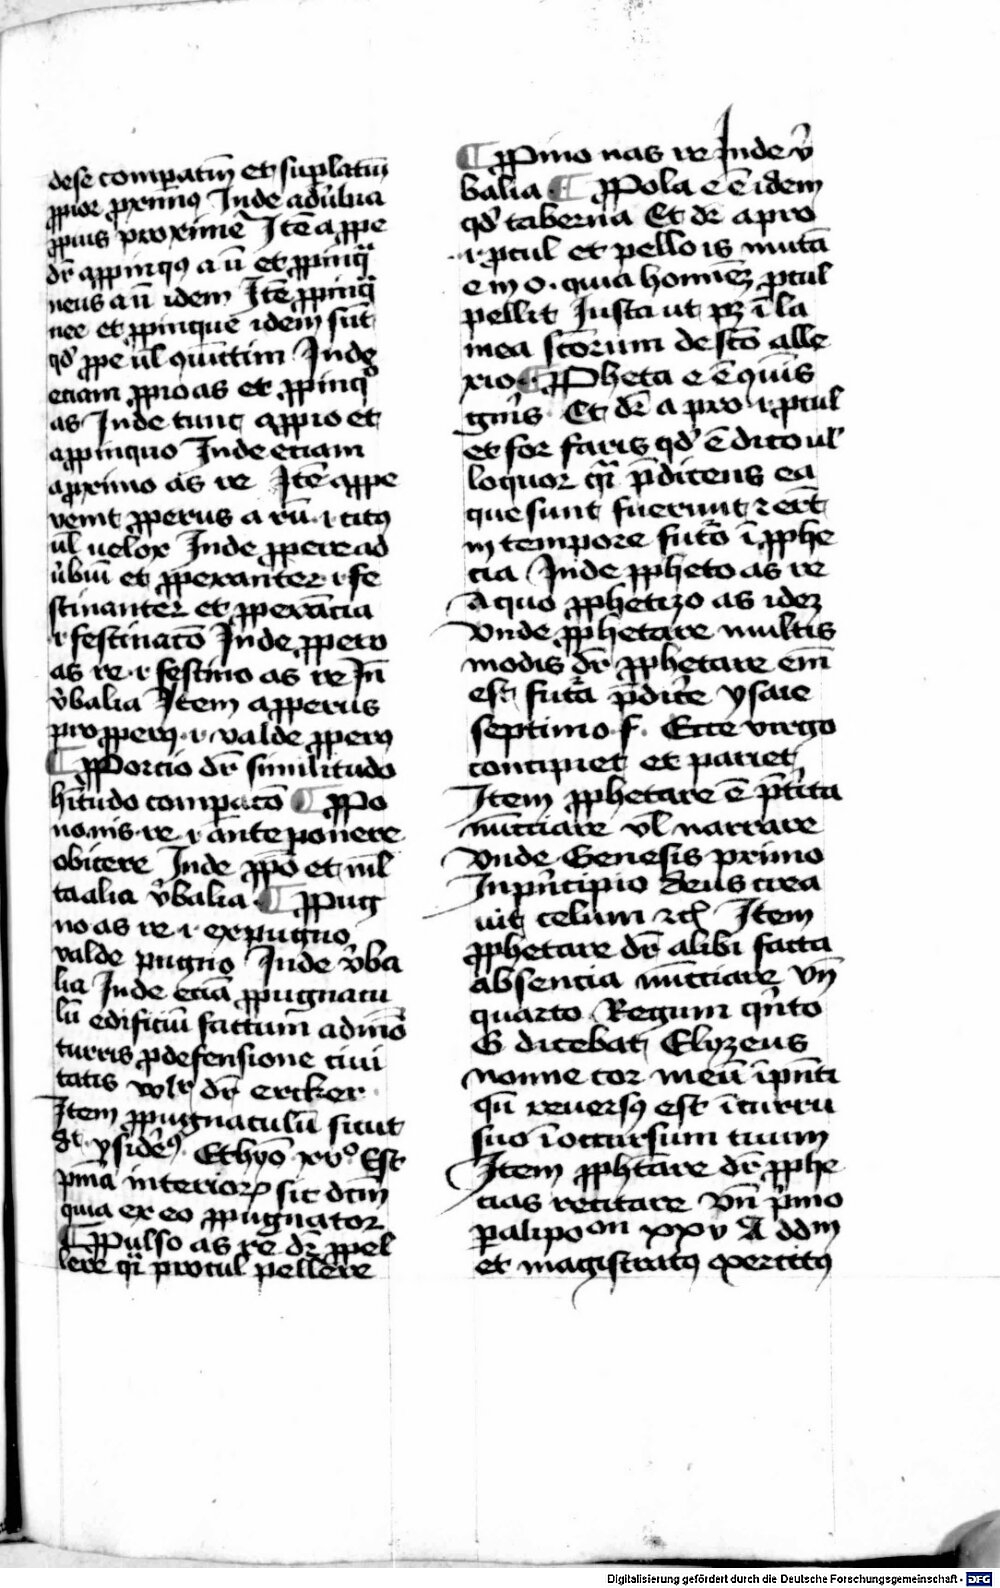 de se comparatiū et suplatiū
ꝓpior ꝓximꝰ Inde adūbia
ꝓpius proxime Itē a ꝓpe
dr̄ aꝓpinqꝰ a ū et ꝓpinq̄
neus a ū idem Itē ꝓpinq̄
nee et ꝓpinque idem sūt
qd̓ ꝓpe ul̓ quītim Inde
etiam ꝓpio as et ꝓpinqͦ
as Inde tunc aꝓpio et
aꝓpinquo Inde etiam
aꝓximo as re Itē a ꝓpe
venit ꝓperus a rū ·i· citꝰ
ul̓ uelox Inde ꝓpere ad
ūbiū et ꝓperanter ·i· fe
stinanter et ꝓperācia
·i· festinacō Inde ꝓpero
as re ·i· festino as re Jn̄
v̓balia Item aꝓperus
pro ꝓperꝰ ·i· valde ꝓperꝰ
¶ ꝓPorcio dr̄ similitudo
hītudo comparacō ¶ ꝓPo
no nis re ·i· ante ponere
obicere Inde ꝓpō et ml̄
ta alia v̓balia ¶ ꝓPug
no as re ·i· expugno
valde pugno Inde v̓ba
lia Inde eciā ꝓpugnacu
lū edificiū factum ad mōͦ
turris ꝓ defensione ciui
tatis volr̓ dr̄ ercker
Item ꝓpugnaculū sicut
gͭ ysiderꝰ Ethyō xvͦ Est
pīna interiorꝝ sic dcm̄
quia ex eo ꝓpugnator
¶ ꝓPulso as re dr̄ ꝓpel
lere qī procul pellere
¶ ꝓPino nas re Inde v̓
balia ¶ ꝓPola e ē idem
qd̓ taberna Et dr̄ a pro
·i· ꝓcul et pello is mutā
e in o · quia homineꝫ ꝓcul
pellit Iusta ut pꝫ ī la
mea scōrum de scō alle
xio · ¶ ꝓPheta e ē quīs
gn̄is Et dr̄ a pro ·i· ꝓcul
et for faris qd̓ ē dico ul̓
loquor qī p̄dicens ea
que sunt fuerunt ⁊ ert̄
in tempore futͦo ī ꝓphe
cia Inde ꝓpheto as re
A quo ꝓphetizo as ideꝫ
Vnde ꝓphetare multis
modis dr̄ ꝓphetare em̄
est futͣa p̄dicē ysaie
septimo f. Ecce virgo
concipiet et pariet
Item ꝓphetare ē p̄t̓ita
nūcciare vl̓ narrare
Vnde Genesis primo
In pn̓cipio deus crea
uit celum ⁊cͭ Item
ꝓphetare dr̄ alibi facta
absencia nūcciare vn̄
quarto Regum qn̄to
G dicebat Elyzeus
nonne cor meū īpn̄ti
qn̄ reuersꝰ est ī curru
suo ī occursum tuum
Item ꝓphetare dr̄ ꝓphe
cias recitare vn̄ p̓mo
ꝑalipoon xxv A dd̄m
et magistratꝰ exercitꝰ
Digitalisierung gefördert durch die Deutsche Forschungsgemeinschaft - DFG